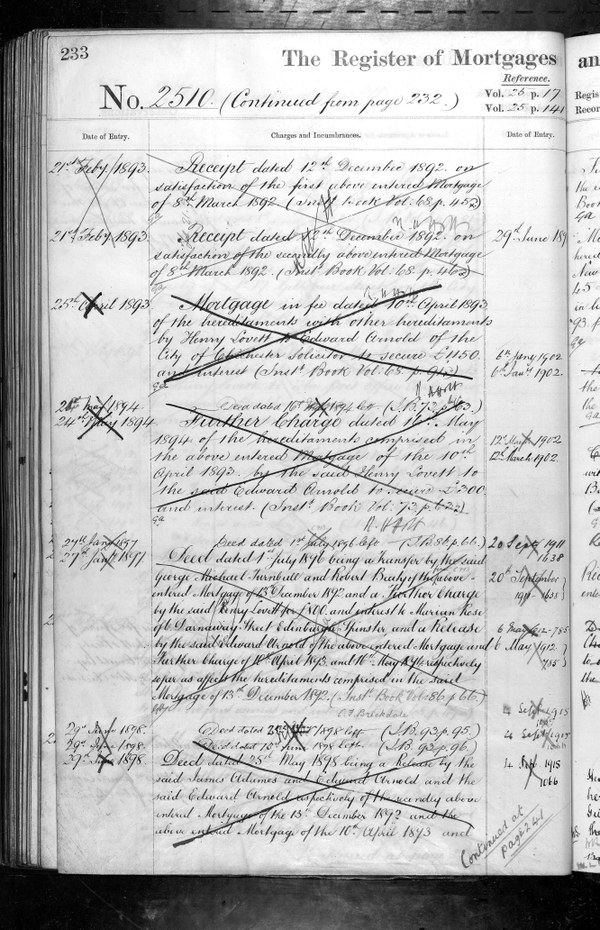 233
The Register of Mortgages
Reference.
No. 2510. (Continued from page 232.)
Vol. 26 p. 17
Vol. 25 p. 141
Date of Entry.
Charges and Incumbrances.
Date of Entry.
21st Feby 1893.
Receipt dated 12th December 1892 on
satisfaction of the first above entered Mortgage
of 8th March 1892 (Inst. Book Vol. 68. p. 452)
21st Feby 1893.
Receipt dated 12th December 1892. on
29th June
satisfaction of the secondly above entered Mortgage
of 8th March 1892. (Inst. Book Vol. 68. p. 462)
25th April 1893
Mortgage in fee dated 10th April 1893
of the hereditaments with other hereditaments
by Henry Lovett to Edward Arnold of the
City of Chichester Solicitor to secure £1150.
6th Jany 1902
and interest (Inst. Book Vol. 68. p. 943)
6th Jany 1902.
1894
Deed dated 16th May 1894 left (I.B. 73. p. 63.)
24th May 1894
Further Charge dated 16th May
1894 of the hereditaments comprised in
12th March 1902
the above entered Mortgage of the 10th
12th March 1902
April 1893. by the said Henry Lovett to
the said Edward Arnold to secure £300
and interest. (Inst. Book Vol. 73. p. 63.)
27th Jany 1897
Deed dated 1st July 1896 left (I.B. 86. p. 66.)
20 Sept 1911
1638
27th Jany 1897
Deed dated 1st July 1896 being a Transfer by the said
George Michael Turnbull and Robert Bealy of the above
20th September
entered Mortgage of 13th December 1892 and a Further Charge
1911 - 1638
by the said Henry Lovett for £800. and interest to Marian Rose
of 6 Darnaway Street Edinburgh Spinster, and a Release
6 May 1912 - 785
by the said Edward Arnold of the above entered Mortgage and
6 May 1912.
Further Charge of 10th April 1893 and 16th May 1894 respectively
785
so far as affect the hereditaments comprised in the said
Mortgage of 13th December 1892. (Inst. Book Vol. 86. p. 66.)
4 Sept 1915
29th June 1898.
Deed dated 28th May 1898 left (I.B. 93. p. 95.)
29th June 1898.
Deed dated 15th June 1898 left. (I.B. 93. p. 96.)
29th June 1898
Deed dated 28th May 1898 being a Release by the
4 Sept 1915
1066
said James Adames and Edward Arnold and the
said Edward Arnold respectively of the secondly above
entered Mortgage of the 13th December 1892 and the
above entered Mortgage of the 10th April 1893 and
Continued at
page 241